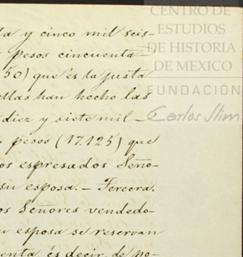 ta y cinco mil seis-
pesos cincuenta
50) que és la justa
ellas han hecho las
diez y siete mil –
pesos (17.125) que
os espresados Seño-
su esposa. – Tercera.
os Señores vendedo-
u esposa se reservan
enta és decir de po-
CENTRO DE
ESTUDIOS
DE HISTORIA
DE MEXICO
FUNDACIÓN
Carlos Slim